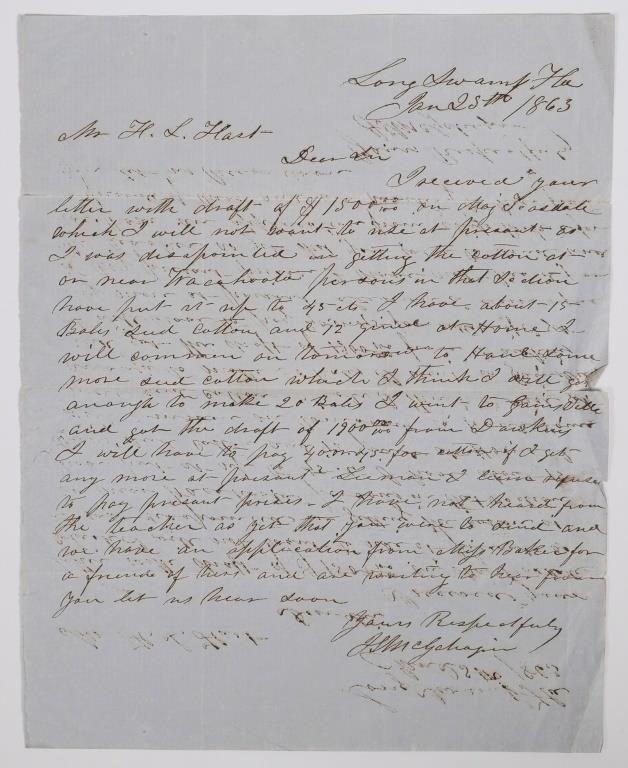 Long Swamp Fla
Jan 25th / 1863
Mr H. L. Hart
Dear Sir
I received your
letter with draft of $1500 00/100 on Maj Teasdale
which I will not want to use at present as
I was disapointed in getting the cotton at
or near Wacahoota persons in that Section
have put it up to 45 cts I have about 15
Bales Seed Cotton and 12 gined at Home I
will commen on tomorrow to Haul some
more seed cotton which I think I will get
anough to make 20 Bales I went to Gainsville
and got the draft of 1900 00/100 from Dawkins
I will have to pay 40 or 45 for cotton if I get
any more at present and
to pay present prises. I have not heard from
the teacher as yet that you were to send and
we have an application from Miss Baker for
a friend of hers and are waiting to hear from
you let us hear soon
Yours Respectfuly
J S McGahagin